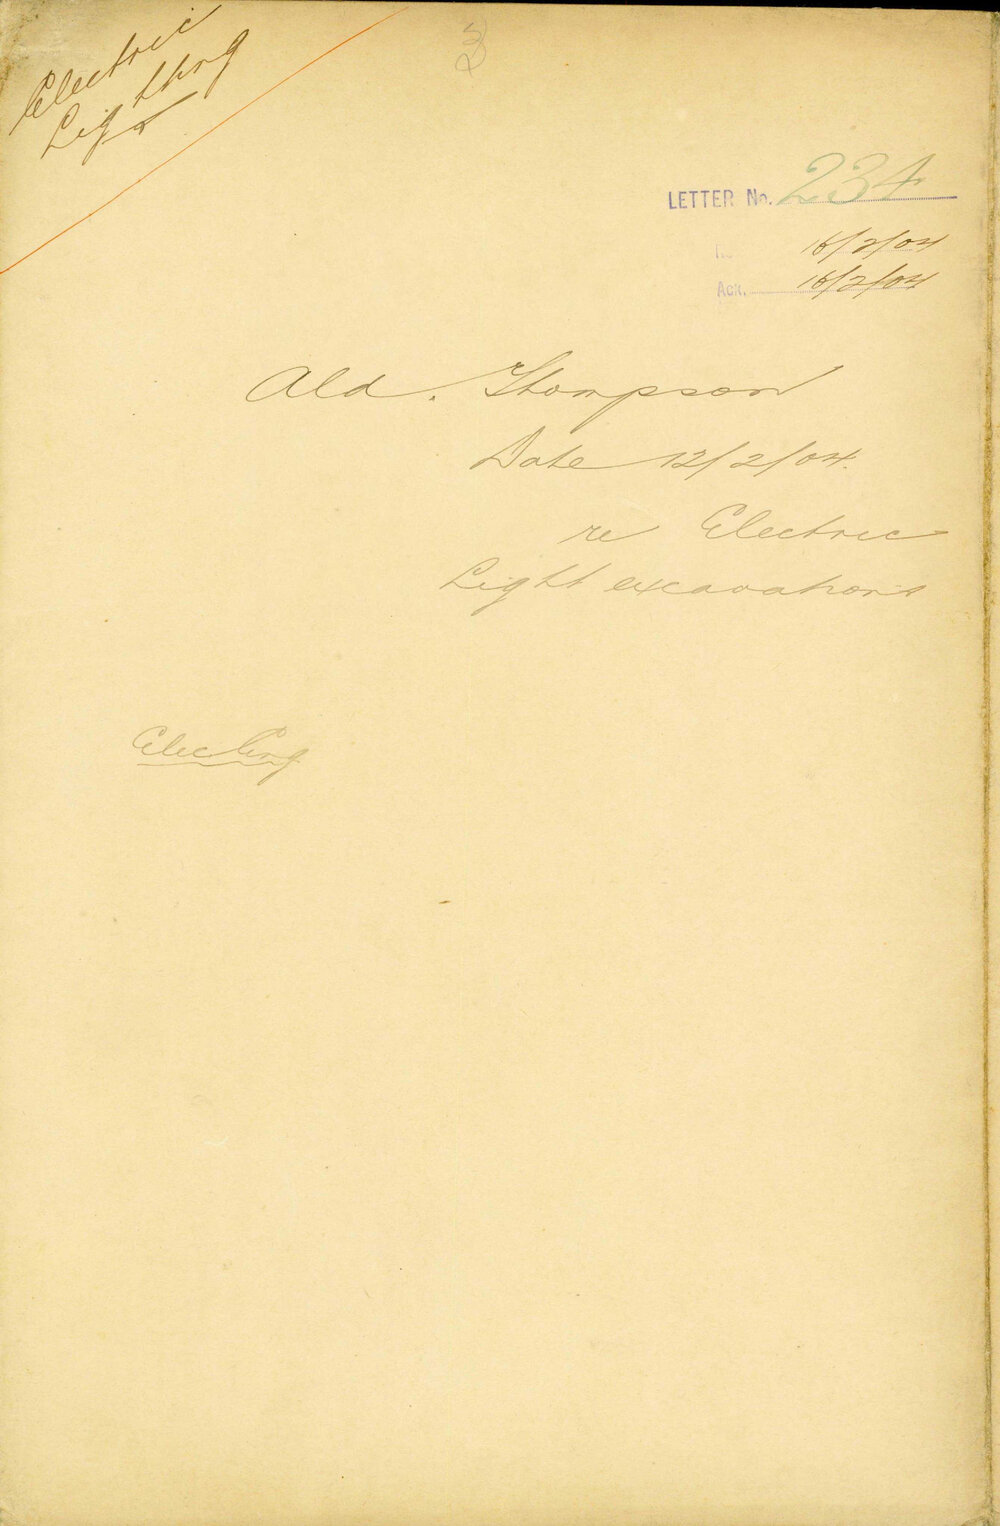 Electric
Lighting
LETTER No. 234
16/2/04
Ack. 16/2/04
Ald. Thompson
Date 12/2/04.
re Electric
Light excavations
Elec Eng